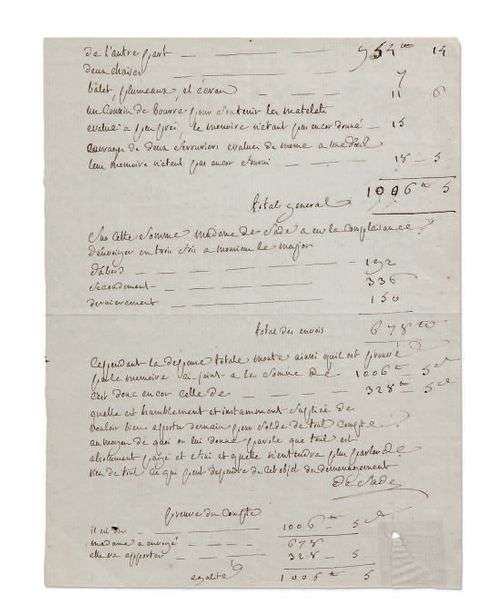 de l'autre part — — — — 954ᵗᵗ 14
deux chaises — — — — 7
balet, plumeaux, et écran — — — 11 6
un coussin de bourre pour soutenir les matelats
evalué a peu près, le memoire n'etant pas encor donné — 15
ouvrages de deux serruriers evalués de meme a
leur memoire n'etant pas encor fourni — — 18 — 5
total general 1006ᵗᵗ 5
Sur cette somme madame de Sade a eu la complaisance
d'envoyer en trois fois a monsieur le major
d'abord — — — — 192
secondement — — — — 336
dernierement — — — — 150
total des envois 678ᵗᵗ
Cependant la depense totale monte ainsi qu'il est prouvé
par le memoire ci joint a la somme de — 1006ᵗᵗ — 5
c'est donc encor celle de — — — 328ᵗᵗ — 5
quelle est humblement et instamment supliée de
vouloir bien aporter demain pour solde de tout compte
au moyen de quoi on lui donne parole que tout est
absolument payé et qu'elle n'entendra plus parler de
rien de tout ce qui peut dependre de cet objet du demenagement
de Sade
preuve du compte
il est du — — — 1006ᵗᵗ — 5
madame a envoyé — — 678
elle va apporter — — 328 — 5
egalité 1006 5